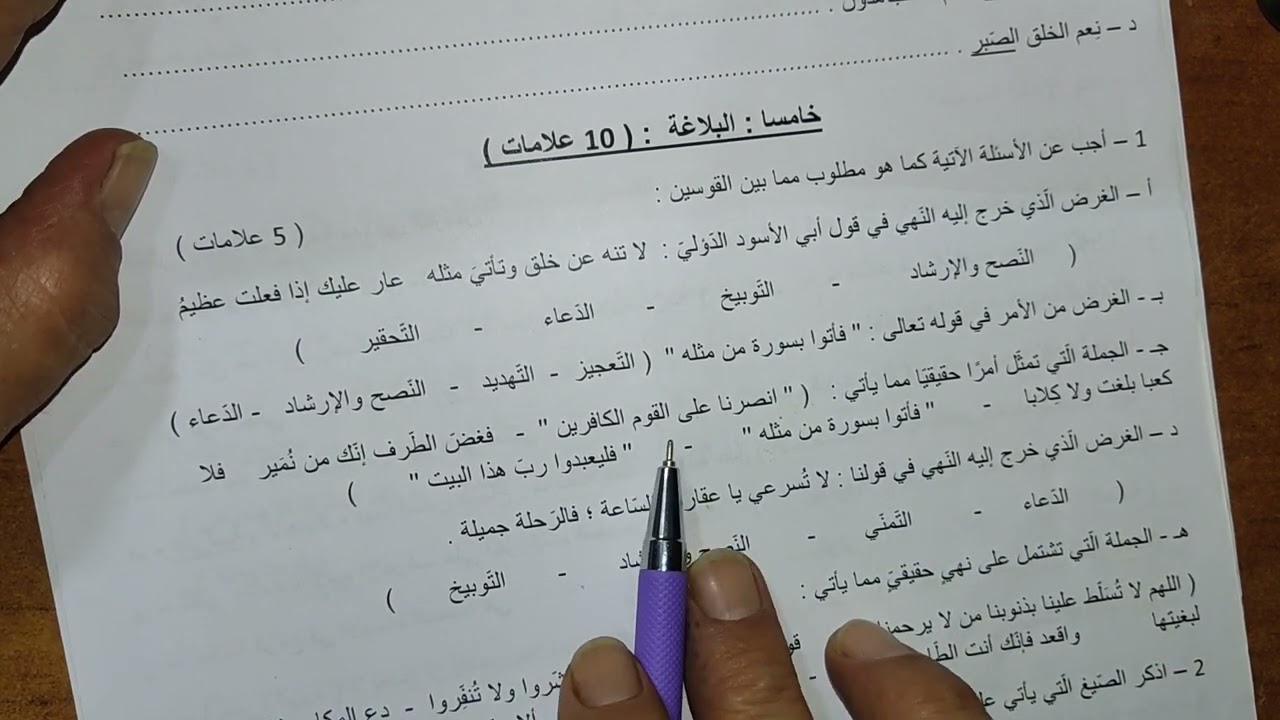 د – نِعم الخلق الصّبر . ........................
خامسا : البلاغة : ( 10 علامات )
1 – أجب عن الأسئلة الآتية كما هو مطلوب مما بين القوسين :
( 5 علامات )
أ – الغرض الّذي خرج إليه النّهي في قول أبي الأسود الدّؤليّ : لا تنه عن خلق وتأتيَ مثله عار عليك إذا فعلت عظيمُ
( النّصح والإرشاد - التّوبيخ - الدّعاء - التّحقير )
بـ - الغرض من الأمر في قوله تعالى : " فأتوا بسورة من مثله " ( التّعجيز - التّهديد - النّصح والإرشاد - الدّعاء )
جـ - الجملة الّتي تمثّل أمرًا حقيقيًا مما يأتي : ( " انصرنا على القوم الكافرين " - فغضّ الطّرف إنّك من نُمَير فلا
كعبا بلغت ولا كِلابا - " فأتوا بسورة من مثله " - " فليعبدوا ربّ هذا البيت " )
د – الغرض الّذي خرج إليه النّهي في قولنا : لا تُسرعي يا عقارب السّاعة ؛ فالرّحلة جميلة .
( الدّعاء - التّمنّي - النّصح والإرشاد - التّوبيخ )
هـ - الجملة الّتي تشتمل على نهيٍ حقيقيّ مما يأتي :
( اللهم لا تُسَلّط علينا بذنوبنا من لا يرحمنا
لبغيتها واقعد فإنّك أنت ولا تُنفِّروا - دع
2 – اذكر الصّيغ الّتي يأتي